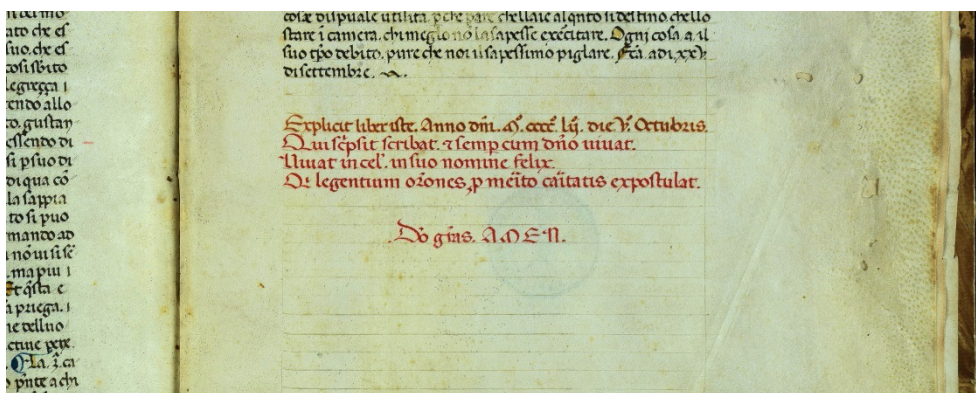 ato che es
suo. che es
cosi sbito
legreçça i
tendo allo
to. gustan
essendo di
si p suo di
di qua cō
la sappia
to si puo
mando ad
nō ui si sē
ma piu i
Et q̄sta e
a priega. i
ctiue pere
La .3. ca
p̄nte a chi
cosæ di spuale utilita. p che pare che llaie al q̄nto si destino che llo
stare i camera. chi meglo nō la sapesse exercitare. Ogni cosa. a. il
suo tp̄o debito. pure che noi il sapessimo piglare. Fc̄a. adi. xxv̄.
di settembre.
Explicit liber iste. Anno dn̄i. M̊. cccc̊. lij. die V̊. Octubris.
Qui sc̄psit scribat. ⁊ semp cum dn̄o uiuat.
Viuat in cel̄. in suo nomine felix.
Qr legentium or̄ones, p mēito caītatis expostulat.
Dō gr̄as. AMEN.